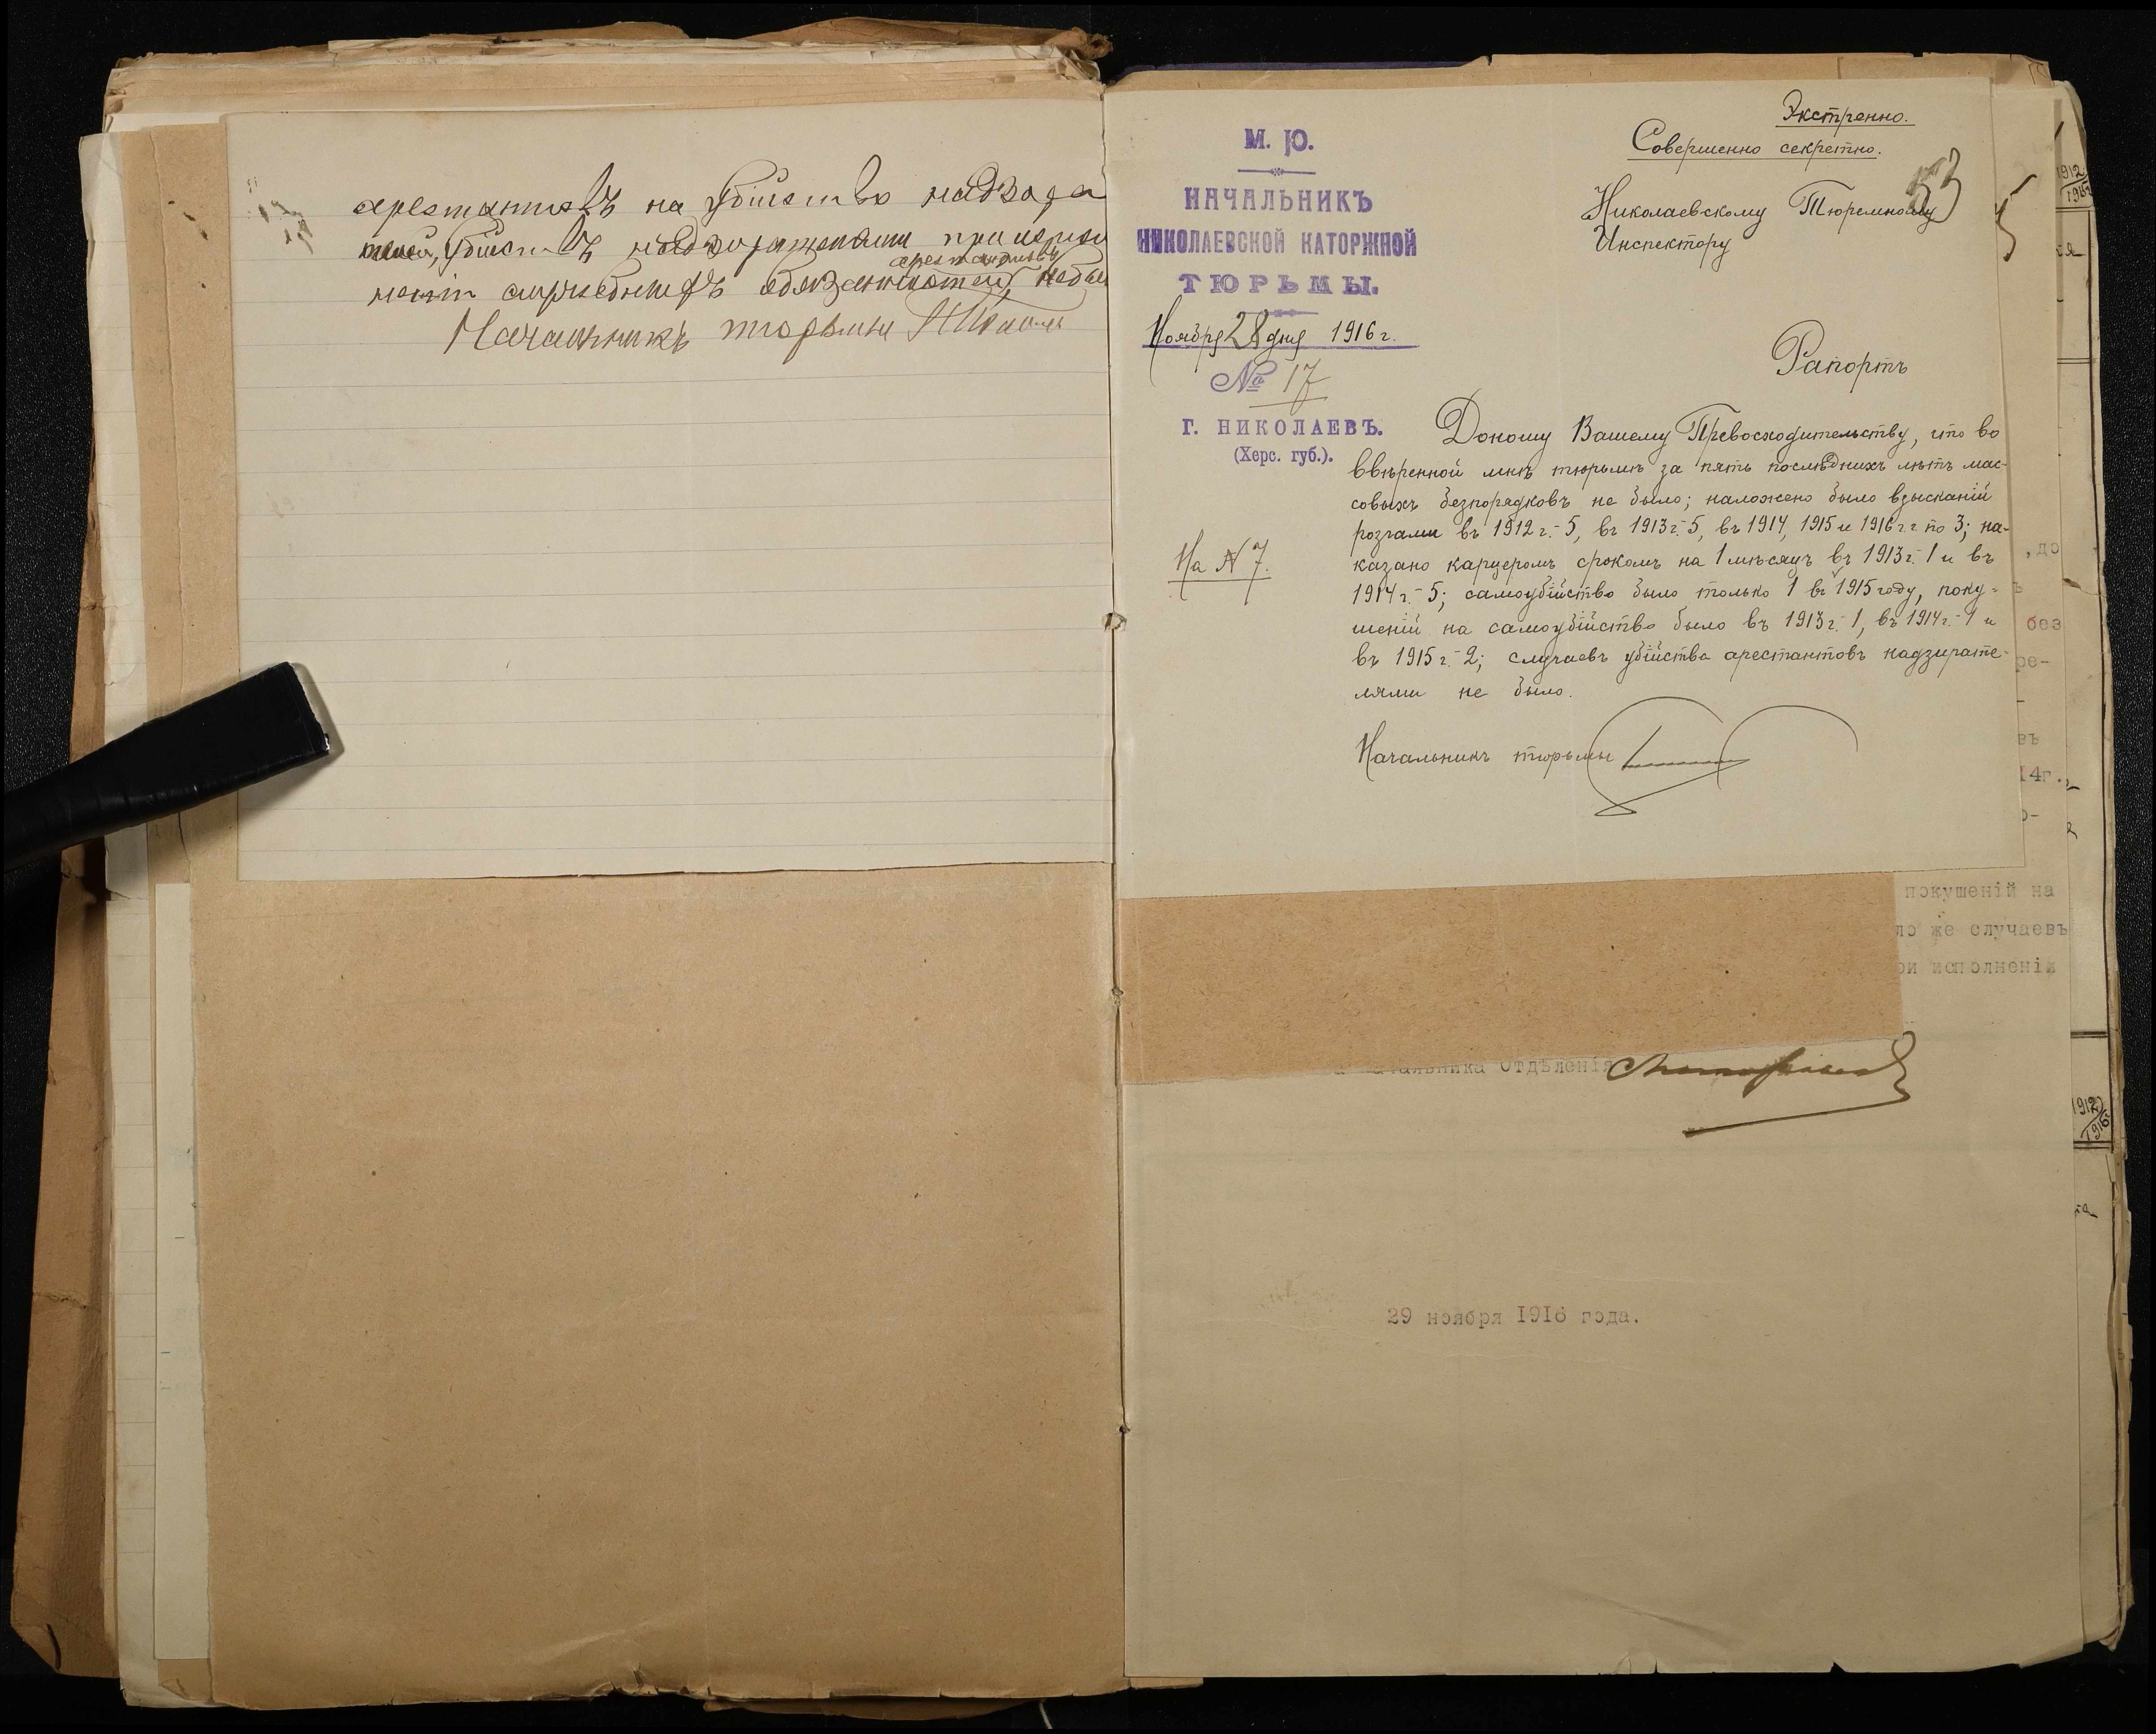 арестантовъ на убійство надзира
телей, убійствъ надзирателями при исполне
арестантовъ
ніи служебныхъ обязанностей, не было
Начальникъ тюрьмы
Экстренно.
Совершенно секретно.
53
Николаевскому Тюремному
Инспектору
М. Ю.
НАЧАЛЬНИКЪ
НИКОЛАЕВСКОЙ КАТОРЖНОЙ
ТЮРЬМЫ.
Ноября 28 дня 1916 г.
№ 17
Г. НИКОЛАЕВЪ.
(Херс. губ.).
На № 7.
Рапортъ
Доношу Вашему Превосходительству, что во
ввѣренной мнѣ тюрьмѣ за пять послѣднихъ лѣтъ мас-
совыхъ безпорядковъ не было; наложено было взысканій
розгами въ 1912 г.- 5, въ 1913 г. 5, въ 1914, 1915 и 1916 г.г по 3; на-
казано карцеромъ срокомъ на 1 мѣсяцъ въ 1913 г. 1 и въ
1914 г.- 5; самоубійство было только 1 въ 1915 году, поку-
шеній на самоубійство было въ 1913 г. 1, въ 1914 г.- 1 и
въ 1915 г.- 2; случаевъ убійства арестантовъ надзирате-
лями не было.
Начальникъ тюрьмы
, до
ъ
без
ре-
-
въ
14г.,
о-
покушеній на
ло же случаевъ
ри исполненіи
ачальника Отдѣленія
29 ноября 1916 года.
1912
1916
ся
1912
1916